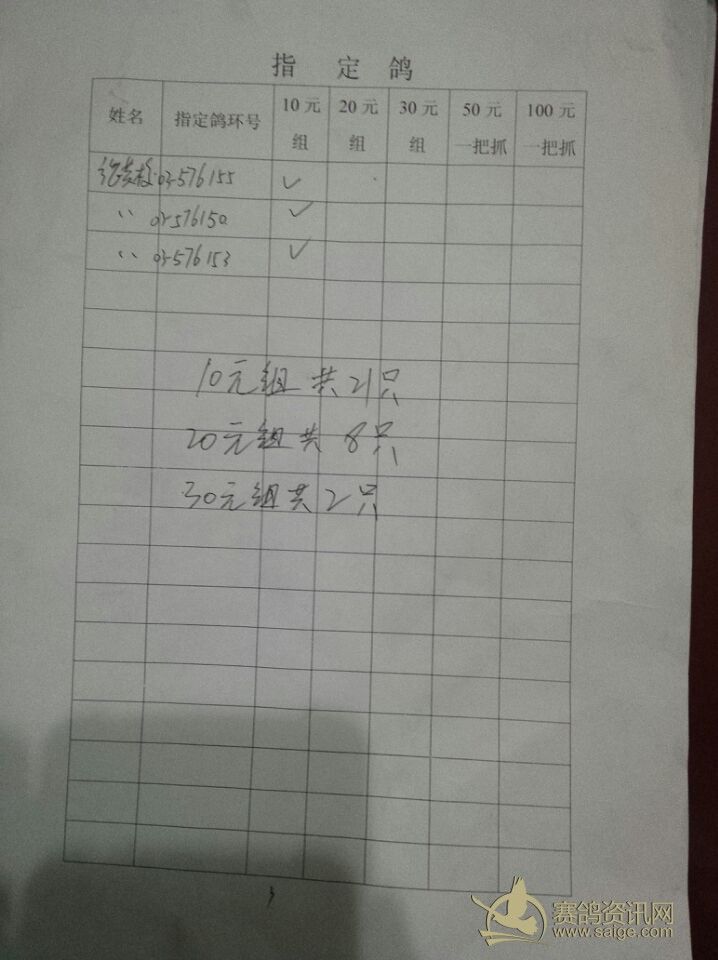 指 定 鸽
姓名 指定鸽环号 10元组 20元组 30元组 50元一把抓 100元一把抓
03-576155 ✓
〃 03-576150 ✓
〃 03-576153 ✓
10元组 共21只
20元组共 8只
30元组共2只
3
赛鸽资讯网
www.saige.com